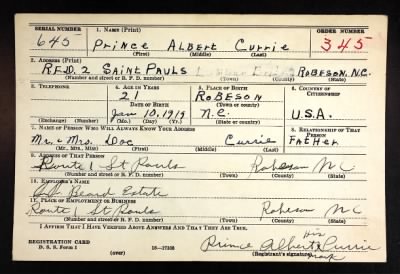 SERIAL NUMBER 1. NAME (Print) ORDER NUMBER
645 Prince Albert Currie 345
(First) (Middle) (Last)
2. ADDRESS (Print)
R.F.D. 2 SAINT PAULS ROBESON, N.C.
(Number and street or R. F. D. number) (Town) (County) (State)
3. TELEPHONE 4. AGE IN YEARS 5. PLACE OF BIRTH 6. COUNTRY OF CITIZENSHIP
21 ROBESON
DATE OF BIRTH (Town or county)
Jan 10, 1919 N.C. U.S.A.
(Exchange) (Number) (Mo.) (Day) (Yr.) (State or country)
7. NAME OF PERSON WHO WILL ALWAYS KNOW YOUR ADDRESS 8. RELATIONSHIP OF THAT PERSON
Mr. + Mrs. Doc Currie FATHER
(Mr., Mrs., Miss) (First) (Middle) (Last)
9. ADDRESS OF THAT PERSON
Route 1 St Pauls Robeson N C
(Number and street or R. F. D. number) (Town) (County) (State)
10. EMPLOYER'S NAME
Beard Estate
11. PLACE OF EMPLOYMENT OR BUSINESS
Route 1 St Pauls Robeson N C
(Number and street or R. F. D. number) (Town) (County) (State)
I AFFIRM THAT I HAVE VERIFIED ABOVE ANSWERS AND THAT THEY ARE TRUE.
REGISTRATION CARD his
D. S. S. Form 1 16—17105 Prince Albert Currie
(Registrant's signature) mark